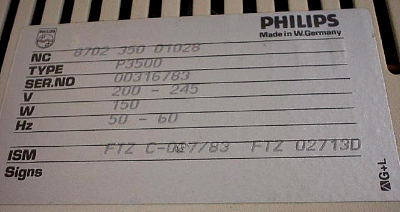 PHILIPS
Made in W. Germany
NC 8702 350 01028
TYPE P3500
SER.NO 00316783
V 200 - 245
W 150
Hz 50 - 60
ISM FTZ C-027/83 FTZ 02713D
Signs
G+L